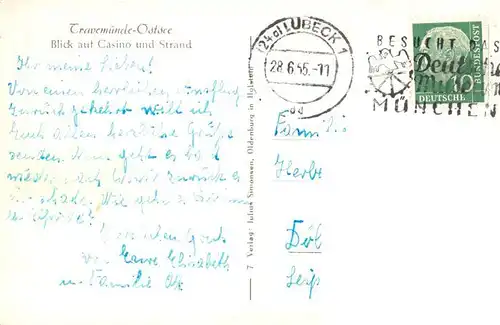 Travemünde-Ostsee
Blick auf Casino und Strand
Ihr meine Lieben!
Von einem herrlichen Ausflug
zurück gekehrt will ich
Euch allen herzliche Grüße
senden. Nun geht es bald
wieder nach zurück
schade. Wie geht es
Herzlichen Gruß
Eure Elisabeth
u. Familie
7 Verlag: Julius Simonsen, Oldenburg in Holstein
(24a) LÜBECK 1
28.6.55.-11
BESUCHT DAS
MÜNCHEN
10
BUNDESPOST
DEUTSCHE
Famili
Herbe
Döb
Leip